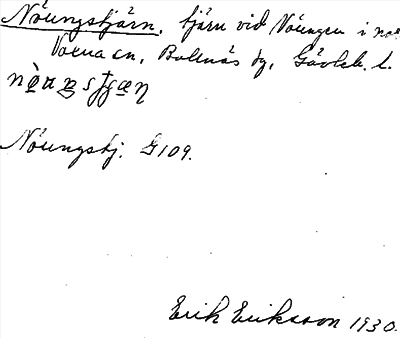 Nöungstjärn. tjärn vid Nöungen i
Voxna sn, Bollnäs tg, Gävleb. l.
Nöungstj. G 109.
Erik Eriksson 1930.